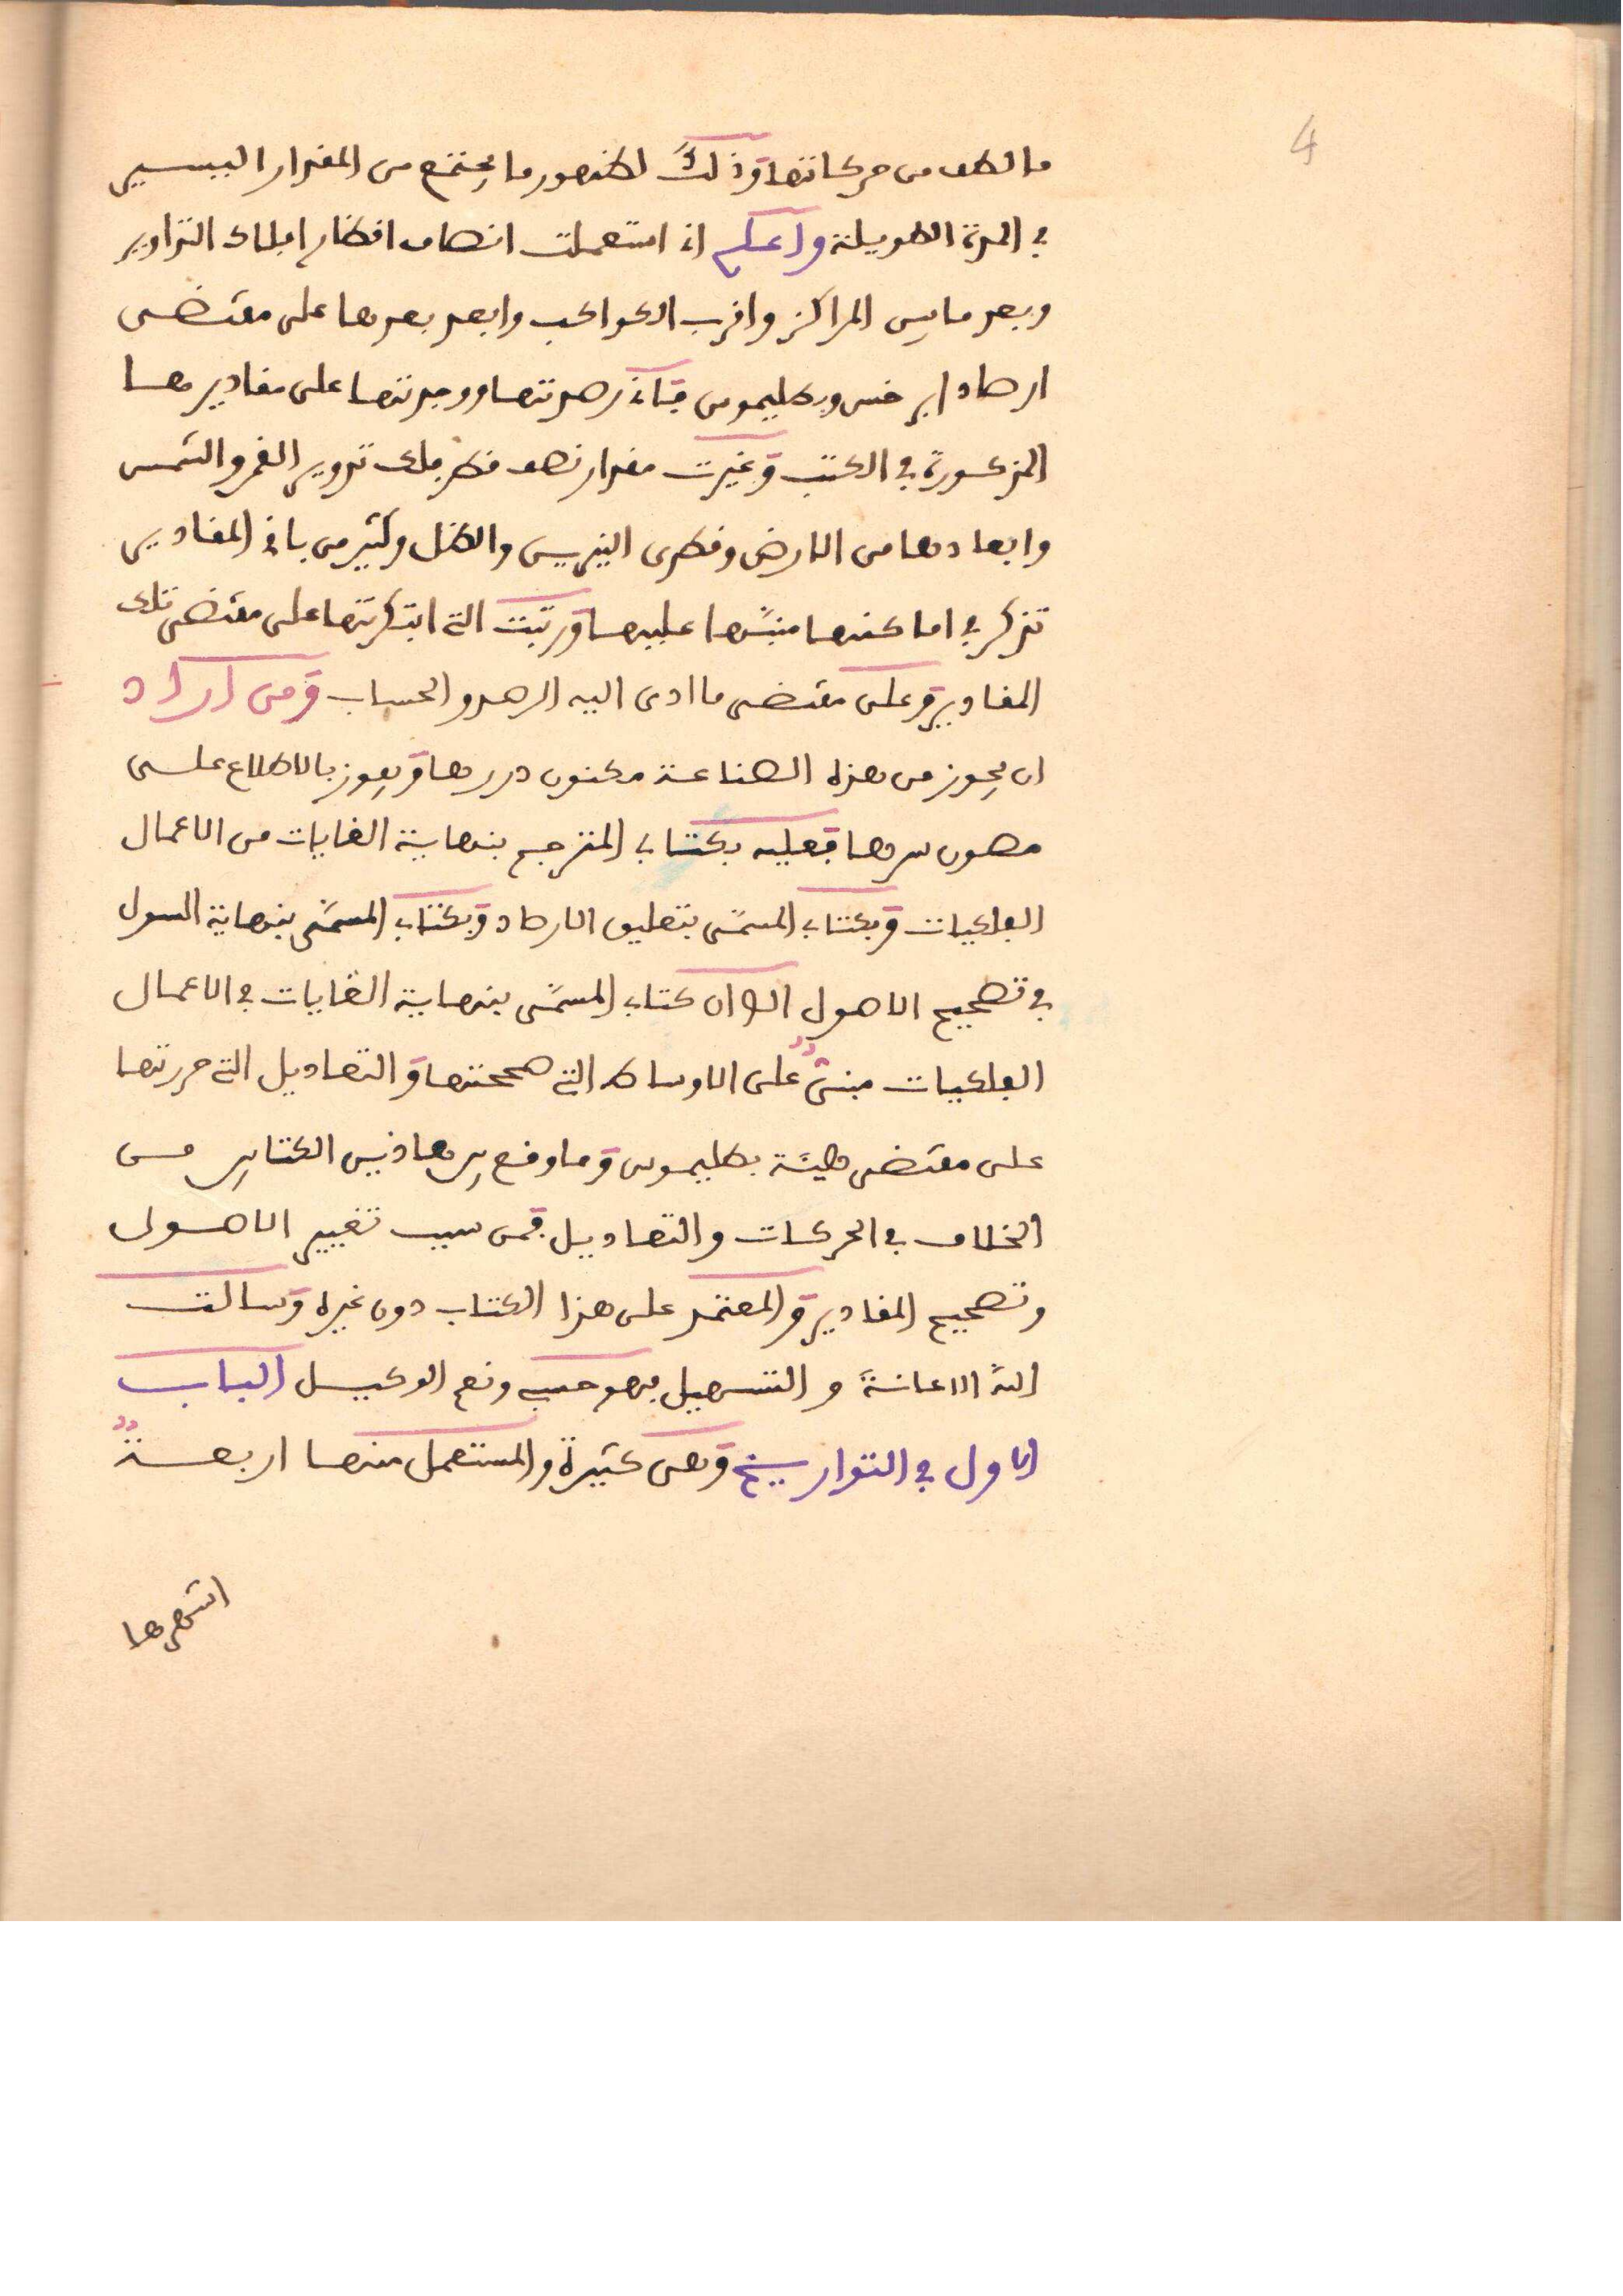 4
ما لطف من حركاتها وذلك لظهور ما يجتمع من المقدار اليسير
في المدة الطويلة واعلم اني استعملت انصاف اقطار افلاك التداوير
وبعد ما بين المراكز واقرب الكواكب وابعد بعدها على مقتضى
ارصاد ابرخس وبطليموس فاني رصدتها ووجدتها على مقاديرها
المذكورة في الكتب وغيرت مقدار نصف قطر فلك تدوير القمر والشمس
وابعادها من الارض وقطرى النيرين والظل وكثير من باقي المقادير
تذكر في اماكنها منبّها عليها ورتبت التي ابتكرتها على مقتضى تلك
المقادير وعلى مقتضى ما ادى اليه الرصد والحساب ومن اراد
ان يحوز من هذه الصناعة مكنون دررها ويفوز بالاطلاع على
مصون سرها فعليه بكتابي المترجم بنهاية الغايات من الاعمال
الفلكيات وبكتابي المسمّى بتعليق الارصاد وبكتابي المسمّى بنهاية السول
في تصحيح الاصول الا ان كتابي المسمّى بنهاية الغايات في الاعمال
الفلكيات مبنيّ على الاوساط التي صححتها والتعاديل التي حررتها
على مقتضى هيئة بطليموس وما وقع بين هاذين الكتابين من
الخلاف في الحركات والتعاديل فمن سبب تغيير الاصول
وتصحيح المقادير والمعتمد على هذا الكتاب دون غيره وسالت
الله الاعانة والتسهيل فهو حسبي ونعم الوكيل الباب
الاول في التواريخ وهى كثيرة والمستعمل منها اربعة
اشهرها